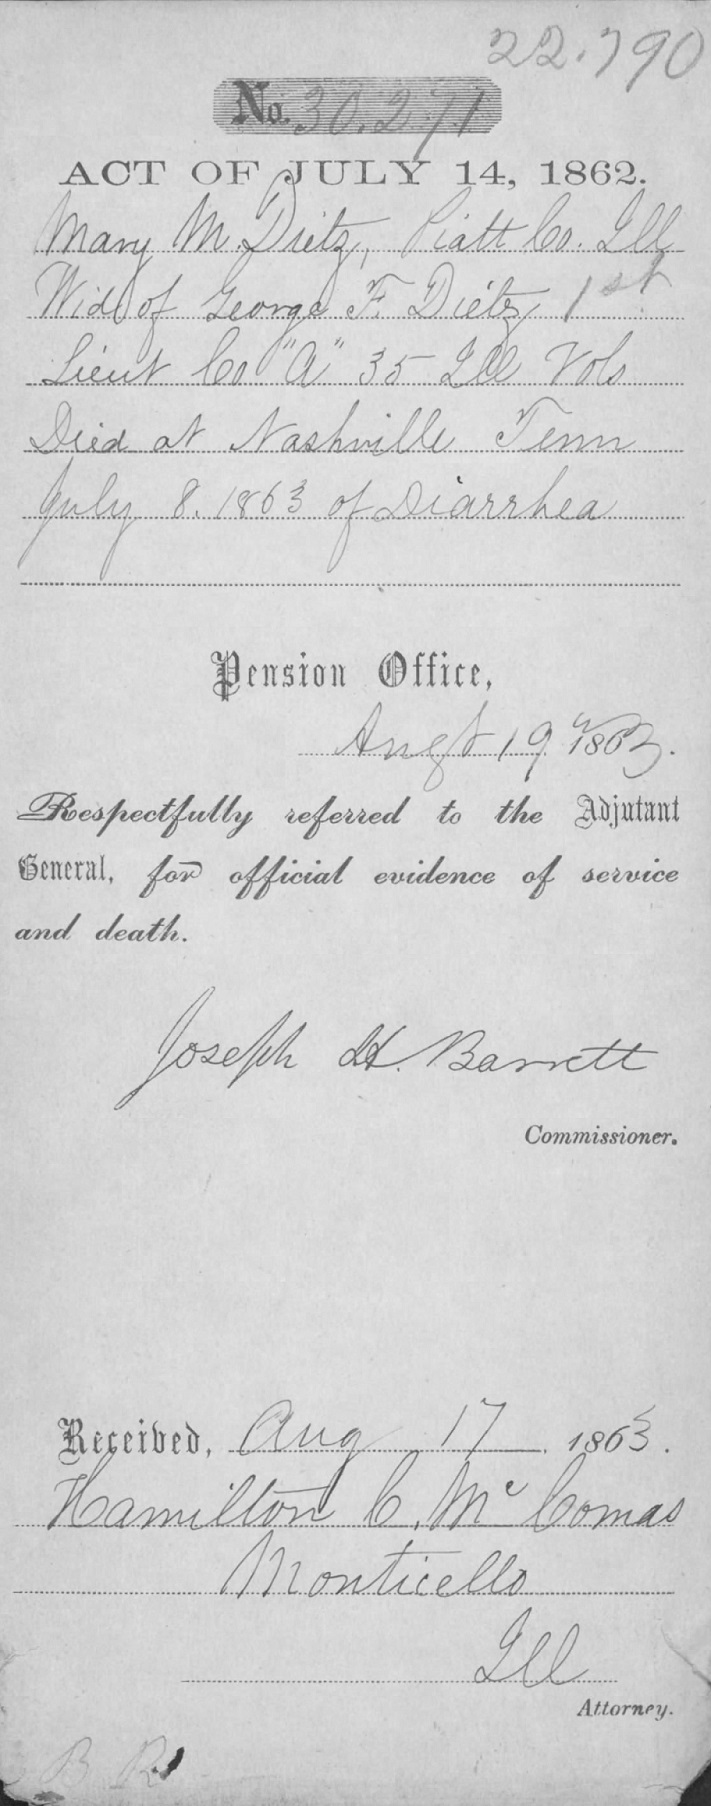 22.790
No. 30.271
ACT OF JULY 14, 1862.
Mary M. Dietz, Piatt Co. Ill
Wid of George F. Dietz 1st
Lieut Co "A" 35 Ill Vols
Died at Nashville Tenn
July 8. 1863 of Diarrhea
Pension Office,
Augt 19 1863.
Respectfully referred to the Adjutant
General, for official evidence of service
and death.
Joseph H. Barrett
Commissioner.
Received, Aug 17 1863.
Hamilton C. Mc Comas
Monticello
Ill
Attorney.
B R